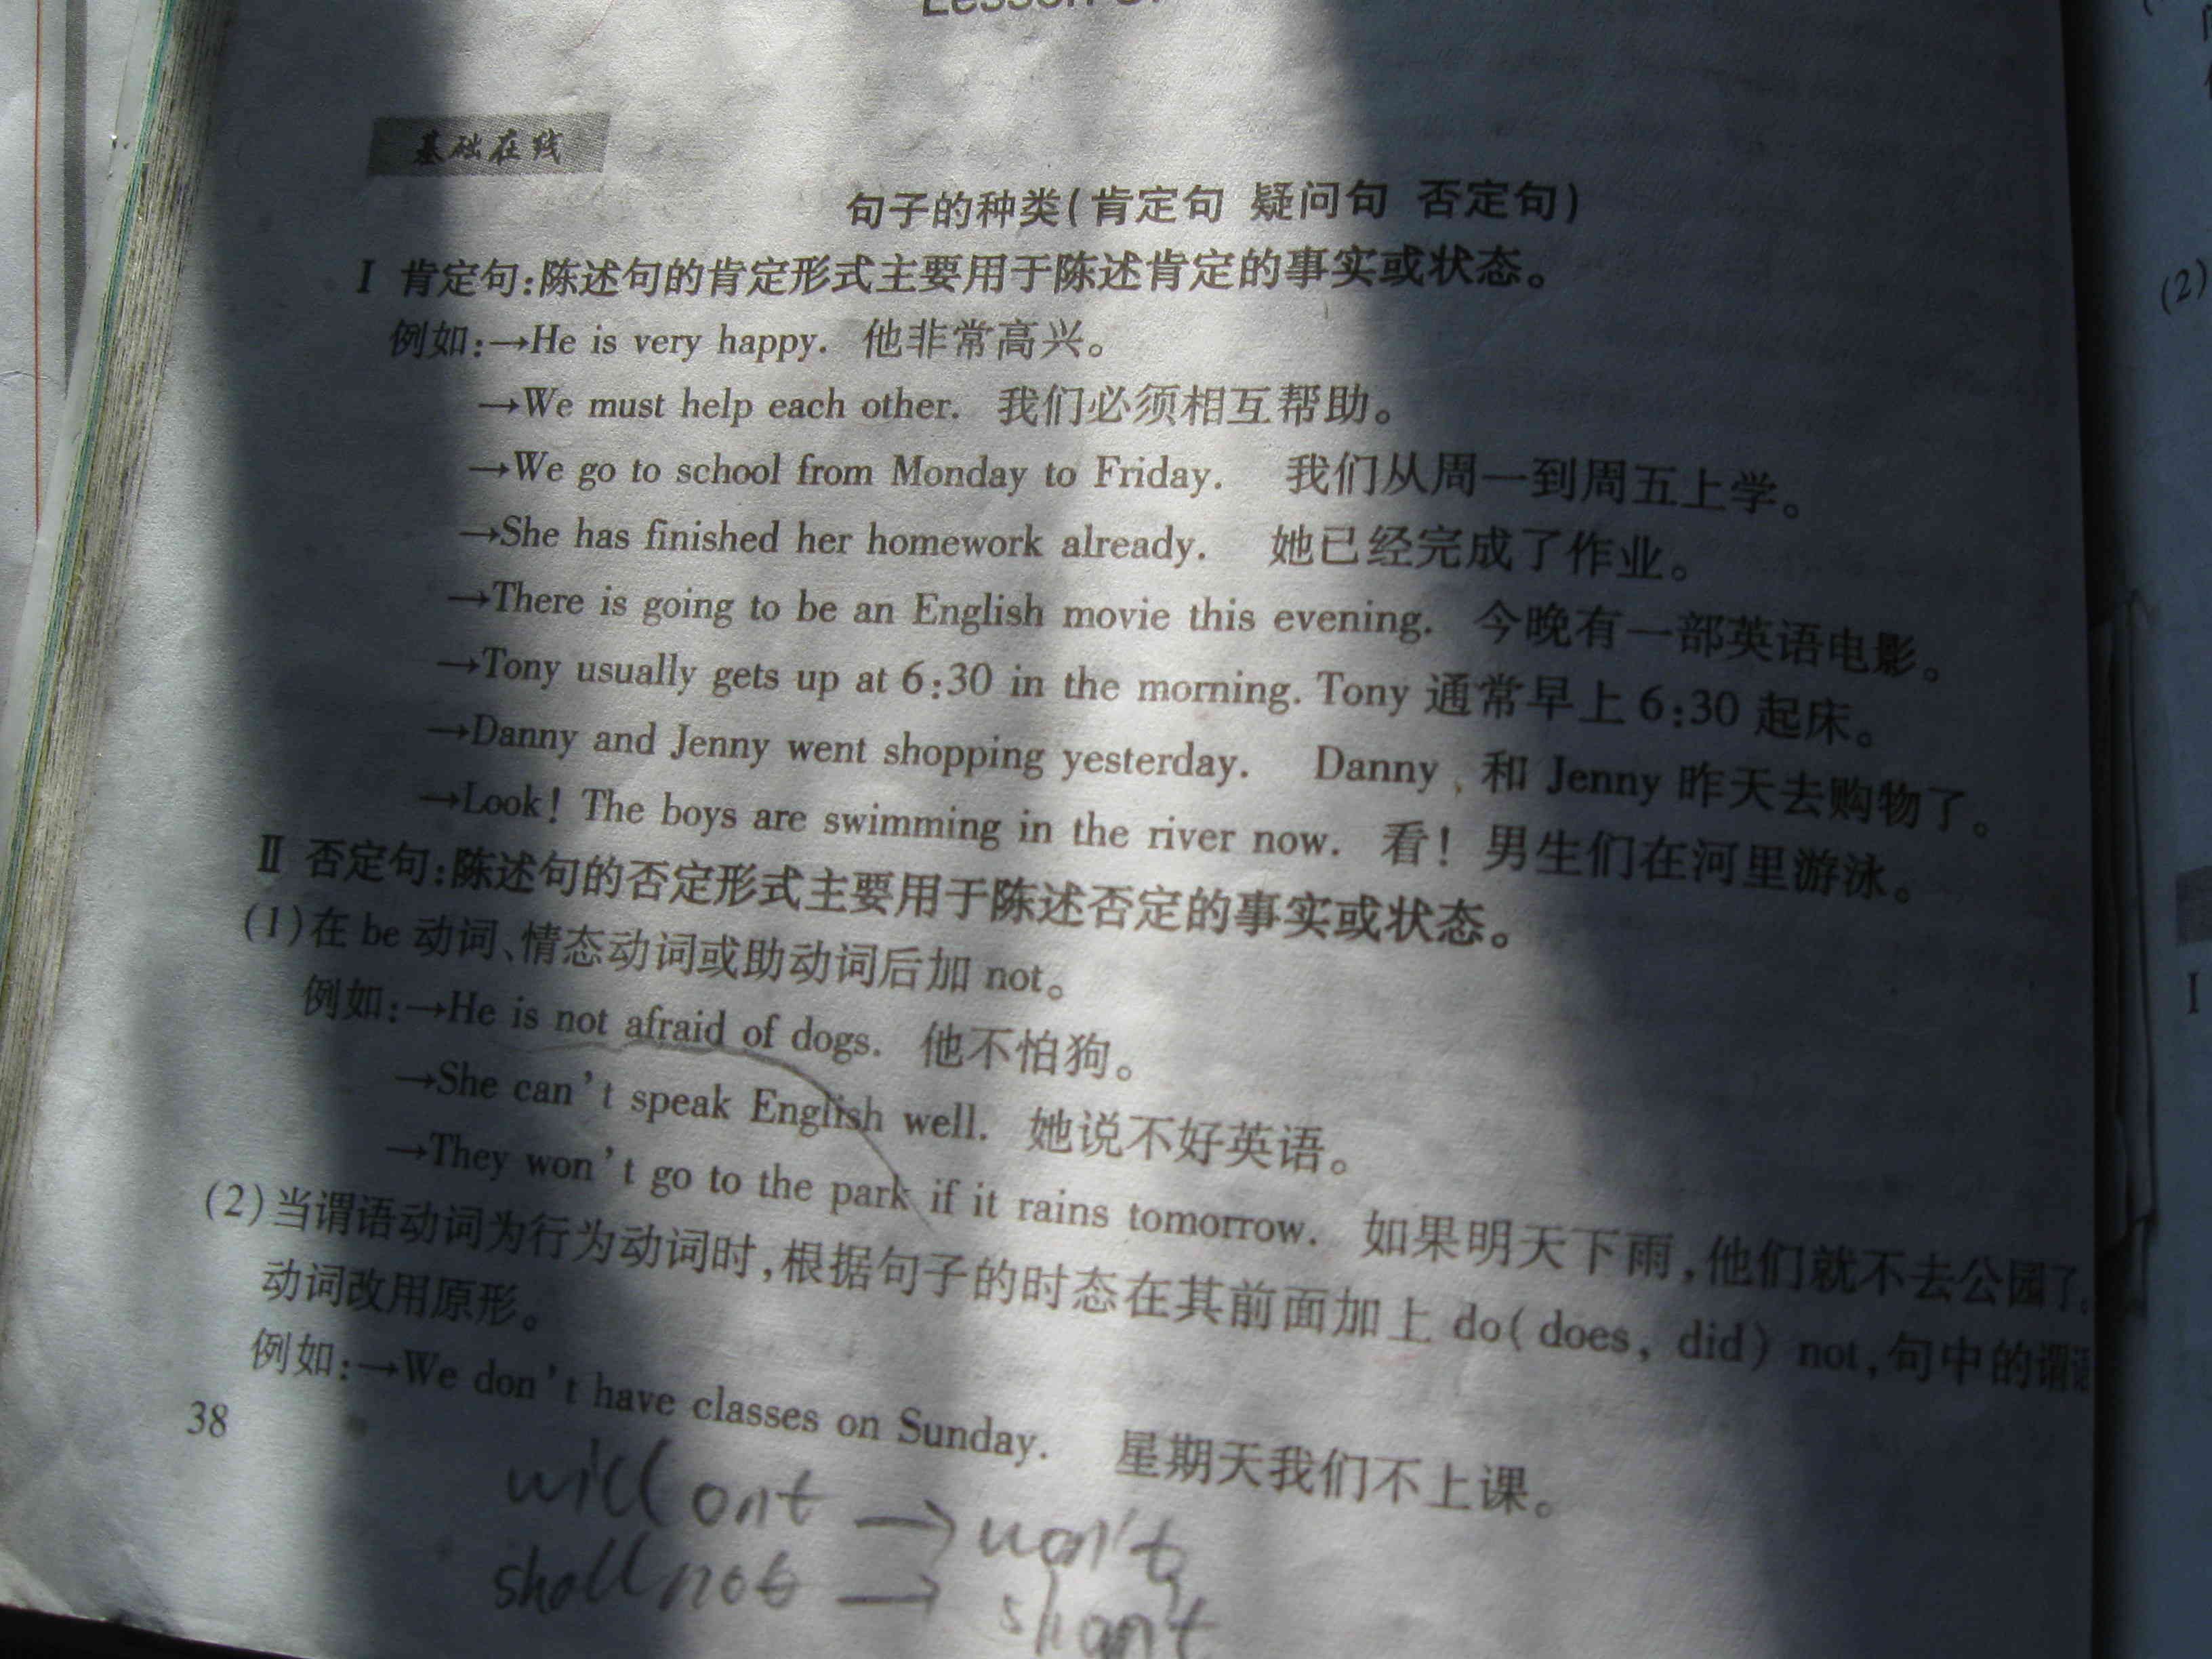 Lesson
基础在线
句子的种类(肯定句 疑问句 否定句)
Ⅰ 肯定句:陈述句的肯定形式主要用于陈述肯定的事实或状态。
例如:→He is very happy. 他非常高兴。
→We must help each other. 我们必须相互帮助。
→We go to school from Monday to Friday. 我们从周一到周五上学。
→She has finished her homework already. 她已经完成了作业。
→There is going to be an English movie this evening. 今晚有一部英语电影。
→Tony usually gets up at 6:30 in the morning. Tony 通常早上 6:30 起床。
→Danny and Jenny went shopping yesterday. Danny, 和 Jenny 昨天去购物了。
→Look! The boys are swimming in the river now. 看! 男生们在河里游泳。
Ⅱ 否定句:陈述句的否定形式主要用于陈述否定的事实或状态。
(1)在 be 动词、情态动词或助动词后加 not。
例如:→He is not afraid of dogs. 他不怕狗。
→She can't speak English well. 她说不好英语。
→They won't go to the park if it rains tomorrow. 如果明天下雨,他们就不去公园了。
(2)当谓语动词为行为动词时,根据句子的时态在其前面加上 do(does, did) not,句中的谓语
动词改用原形。
例如:→We don't have classes on Sunday. 星期天我们不上课。
38
will ont → won't
shall not → shan't
(2)
I